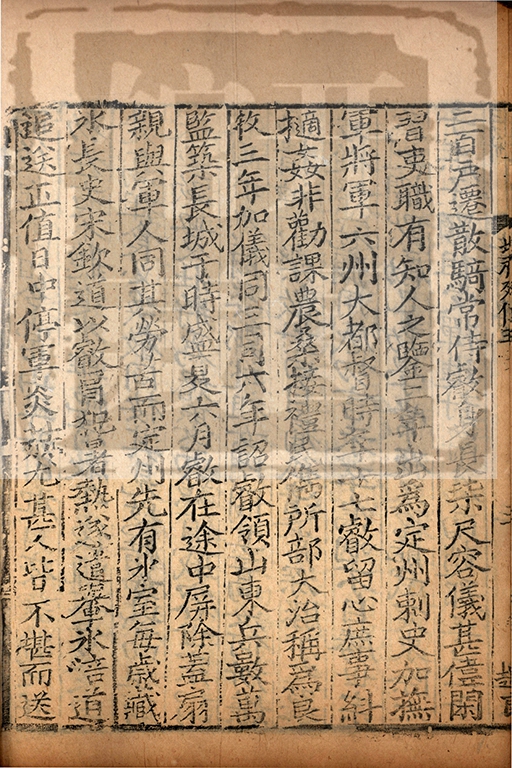 三百戸遷散騎常侍叡身長柒尺容儀甚偉閑
習吏職有知人之鑒三年出為定州刺史加撫
軍將軍六州大都督時年十七叡留心庶事糾
擿姦非勸課農桑接禮民儁所部大治稱為良
牧三年加儀同三司六年詔叡領山東兵數萬
監築長城于時盛夏六月叡在途中屏除蓋扇
親與軍人同其勞苦而定州先有氷室每歲藏
氷長史宋欽道以叡冐犯暑熱遂遣轝氷倍道
追送正值日中停軍炎赫尤甚人皆不堪而送